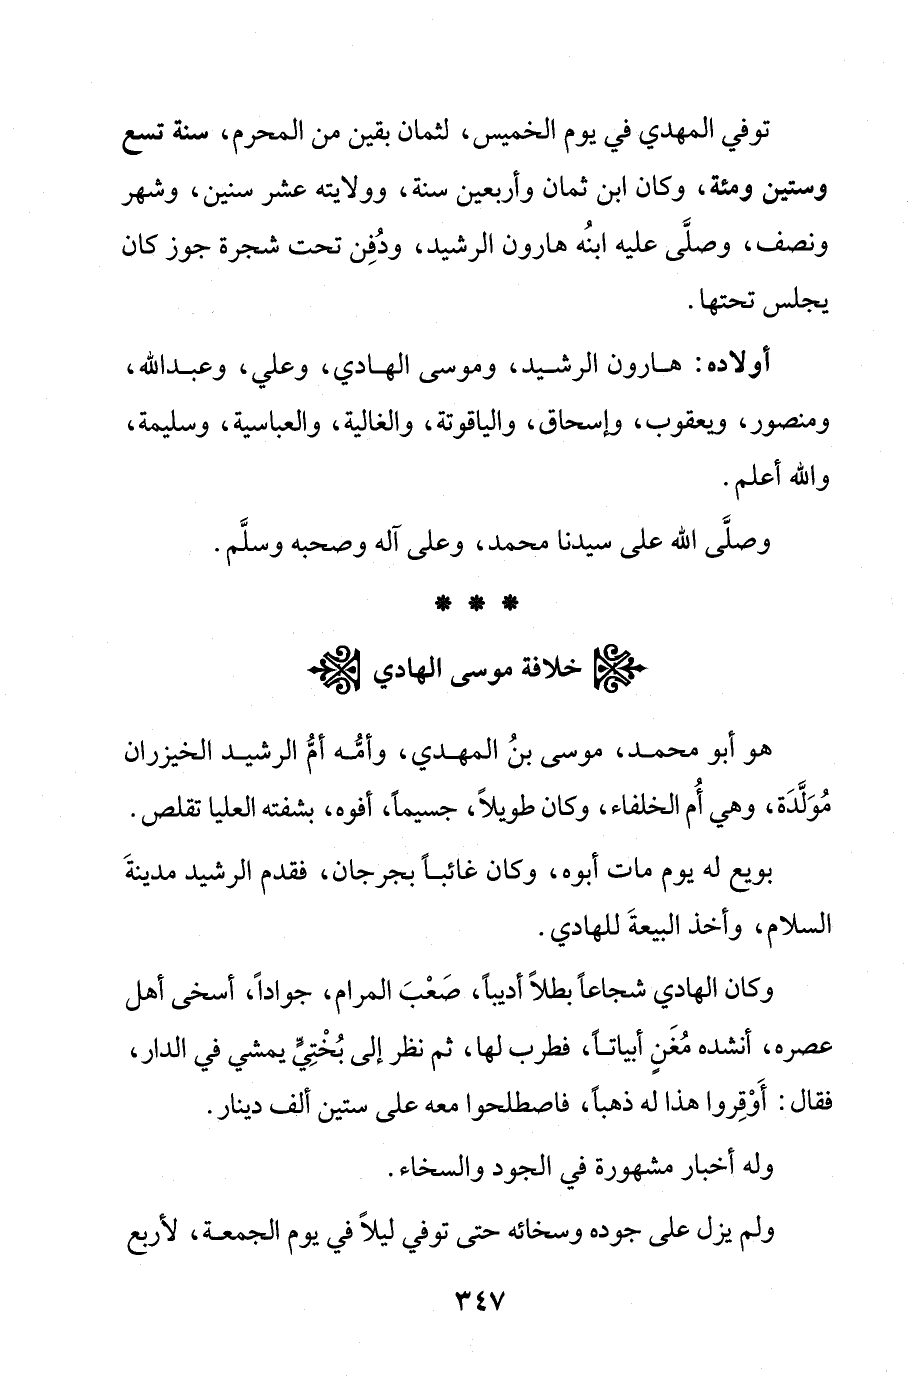 توفي المهدي في يوم الخميس، لثمان بقين من المحرم، سنة تسع
وستين ومئة، وكان ابن ثمان وأربعين سنة، وولايته عشر سنين، وشهر
ونصف، وصلَّى عليه ابنُه هارون الرشيد، ودُفِن تحت شجرة جوز كان
يجلس تحتها.
أولاده: هارون الرشيد، وموسى الهادي، وعلي، وعبدالله،
ومنصور، ويعقوب، وإسحاق، والياقوتة، والغالية، والعباسية، وسليمة،
والله أعلم.
وصلَّى الله على سيدنا محمد، وعلى آله وصحبه وسلَّم.
* * *
خلافة موسى الهادي
هو أبو محمد، موسى بنُ المهدي، وأمُّه أمُّ الرشيد الخيزران
مُوَلَّدَة، وهي أُم الخلفاء، وكان طويلاً، جسيماً، أفوه، بشفته العليا تقلص.
بويع له يوم مات أبوه، وكان غائباً بجرجان، فقدم الرشيد مدينةَ
السلام، وأخذ البيعةَ للهادي.
وكان الهادي شجاعاً بطلاً أديباً، صَعْبَ المرام، جواداً، أسخى أهل
عصره، أنشده مُغَنٍ أبياتاً، فطرب لها، ثم نظر إلى بُخْتِيٍّ يمشي في الدار،
فقال: أَوْقِروا هذا له ذهباً، فاصطلحوا معه على ستين ألف دينار.
وله أخبار مشهورة في الجود والسخاء.
ولم يزل على جوده وسخائه حتى توفي ليلاً في يوم الجمعة، لأربع
٣٤٧